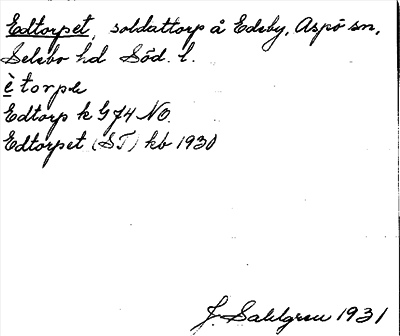 Edtorpet, soldattorp å Edeby, Aspö sn,
Selebo hd Söd. l.
è torpe
Edtorp k G 74 NO.
Edtorpet (ST) kb 1930
J. Sahlgren 1931